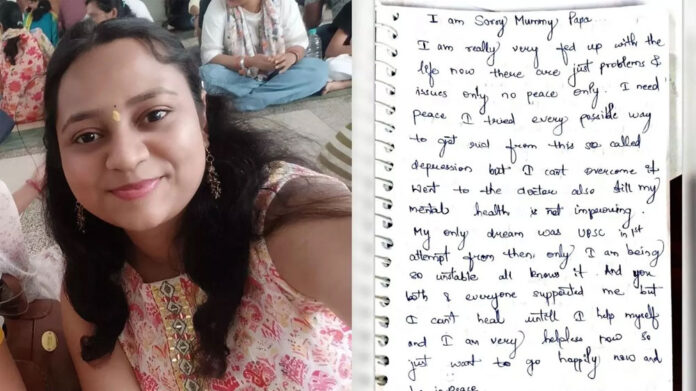 I am Sorry Mummy Papa
I am really very fed up with the
life now there are just problems &
issues only no peace only. I need
peace I tried every possible way
to get rid from this so called
depression but I cant overcome it
Went to the doctor also still my
mental health is not improving.
My only dream was UPSC in 1st
attempt from then only I am being
so unstable all know it. And you
both & everyone supported me but
I can't heal untill I help myself
and I am very helpless now so
just want to go happily now and
in peace